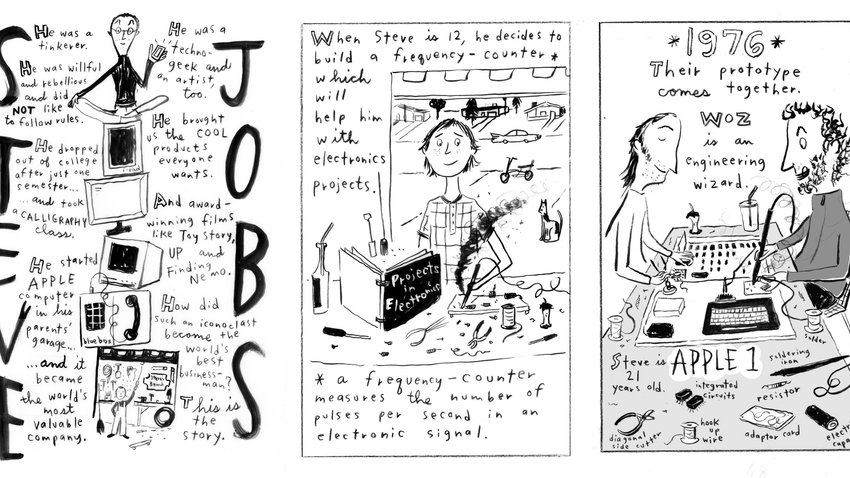 STEVE
JOBS
He was a
tinkerer.
He was willful
and rebellious
and did
NOT like
to follow rules.
He dropped
out of college
after just one
semester...
...and took
a CALLIGRAPHY
class.
He started
APPLE
computer
in his
parents'
garage...
...and it
became
the world's
most
valuable
company.
He was a
techno-
geek and
an artist
too.
He brought
us the COOL
products
everyone
wants.
And award-
winning films
like Toy Story,
UP and
Finding
Nemo.
How did
such an iconoclast
become the
world's
best
business-
man?
This is
the
story.
blue box
When Steve is 12, he decides to
build a frequency-counter*
which
will
help him
with
electronics
projects.
Projects
in
Electronics
* a frequency-counter
measures the number of
pulses per second in an
electronic signal.
*1976*
Their prototype
comes together.
WOZ
is an
engineering
wizard.
Steve is
21
years old.
APPLE 1
solder
soldering
iron
integrated
circuits
resistor
diagonal
side cutter
hook
up
wire
adaptor card